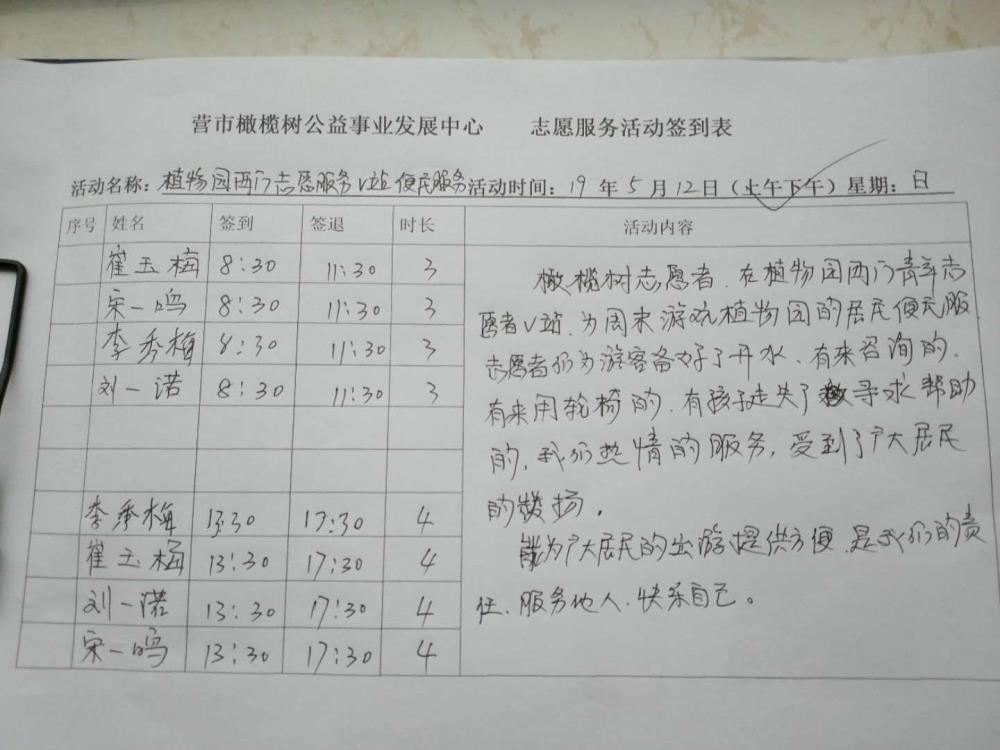 营市橄榄树公益事业发展中心 志愿服务活动签到表
活动名称：植物园西门志愿服务V站便民服务 活动时间：19年5月12日（上午下午）星期：日
序号 姓名 签到 签退 时长 活动内容
崔玉梅 8:30 11:30 3
宋一鸣 8:30 11:30 3
李秀梅 8:30 11:30 3
刘一诺 8:30 11:30 3
李秀梅 13:30 17:30 4
崔玉梅 13:30 17:30 4
刘一诺 13:30 17:30 4
宋一鸣 13:30 17:30 4
橄榄树志愿者．在植物园西门青年志
愿者V站．为周末游玩植物园的居民便民服
志愿者们为游客备好了开水、有来咨询的．
有来用轮椅的．有孩子走失了寻求帮助
的，我们热情的服务，受到了广大居民
的扬．
能为广大居民的出游提供方便．是我们的责
任、服务他人．快乐自己。